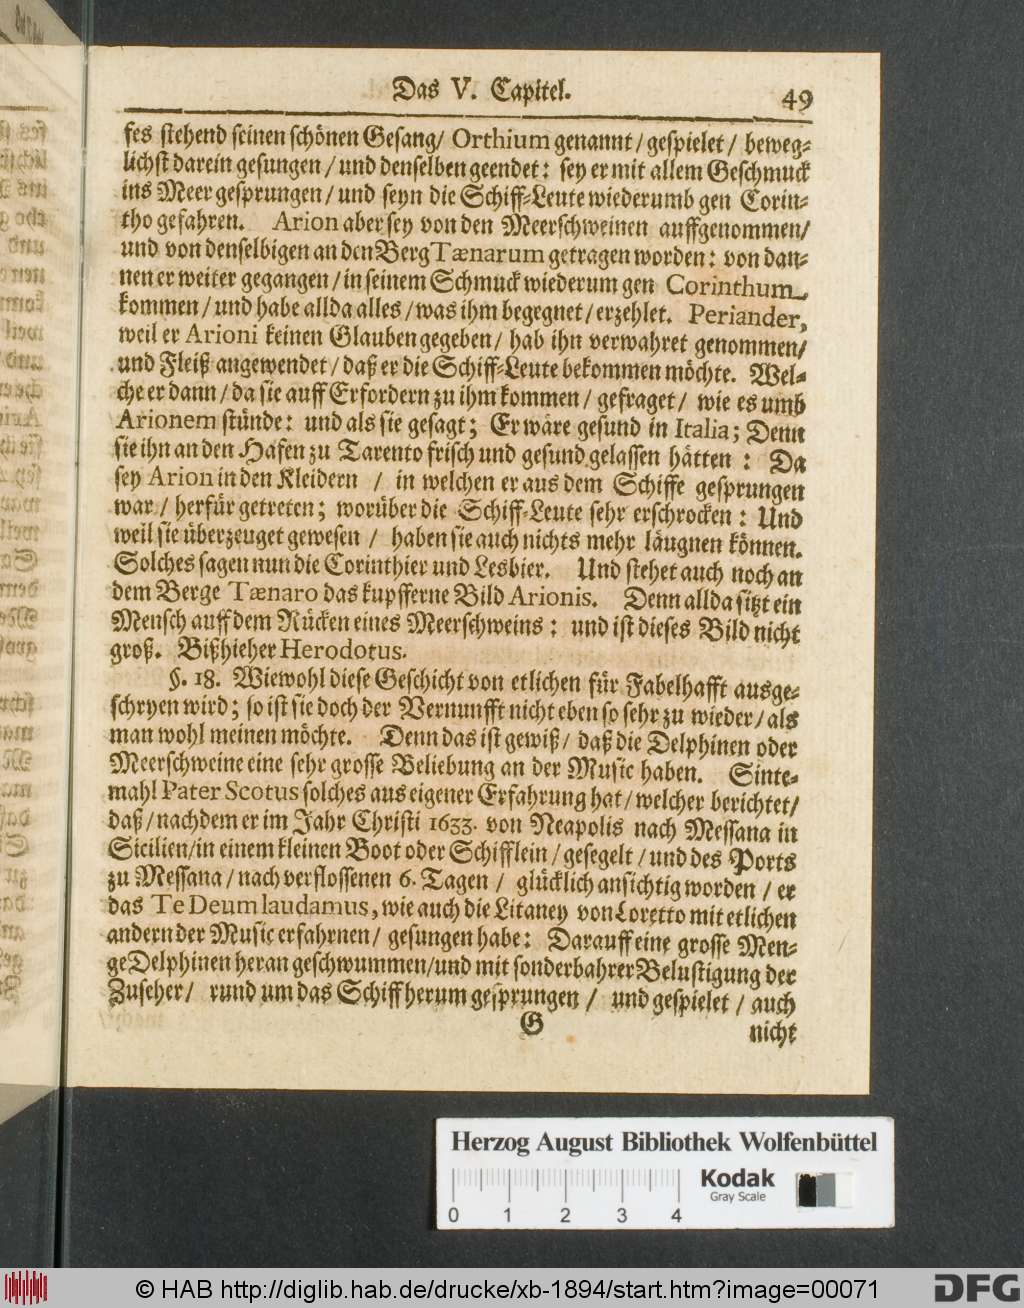 Das V. Capitel. 49
fes stehend seinen schönen Gesang/ Orthium genannt/gespielet/ beweg-
lichst darein gesungen/und denselben geendet: sey er mit allem Geschmuck
ins Meer gesprungen/und seyn die Schiff-Leute wiederumb gen Corin-
tho gefahren. Arion aber sey von den Meerschweinen auffgenommen/
und von denselbigen an den Berg Tænarum getragen worden: von dan-
nen er weiter gegangen/in seinem Schmuck wiederum gen Corinthum
kommen/und habe allda alles/was ihm begegnet/erzehlet. Periander,
weil er Arioni keinen Glauben gegeben/ hab ihn verwahret genommen/
und Fleiß angewendet/daß er die Schiff-Leute bekommen möchte. Wel-
che er dann/da sie auff Erfordern zu ihm kommen/ gefraget/ wie es umb
Arionem stünde: und als sie gesagt; Er wäre gesund in Italia; Denn
sie ihn an den Hafen zu Tarento frisch und gesund gelassen hätten: Da
sey Arion in den Kleidern / in welchen er aus dem Schiffe gesprungen
war/ herfür getreten; worüber die Schiff-Leute sehr erschrocken: Und
weil sie überzeuget gewesen/ haben sie auch nichts mehr läugnen können.
Solches sagen nun die Corinthier und Lesbier. Und stehet auch noch an
dem Berge Tænaro das kupfferne Bild Arionis. Denn allda sitzt ein
Mensch auff dem Rücken eines Meerschweins: und ist dieses Bild nicht
groß. Bißhieher Herodotus.
§. 18. Wiewohl diese Geschicht von etlichen für Fabelhafft ausge-
schryen wird; so ist sie doch der Vernunfft nicht eben so sehr zu wieder/als
man wohl meinen möchte. Denn das ist gewiß/ daß die Delphinen oder
Meerschweine eine sehr grosse Beliebung an der Music haben. Sinte-
mahl Pater Scotus solches aus eigener Erfahrung hat/welcher berichtet/
daß/nachdem er im Jahr Christi 1633. von Neapolis nach Messana in
Sicilien/in einem kleinen Boot oder Schifflein/gesegelt/und des Ports
zu Messana/nach verflossenen 6. Tagen/ glücklich ansichtig worden/er
das Te Deum laudamus, wie auch die Litaney von Loretto mit etlichen
andern der Music erfahrnen/ gesungen habe: Darauff eine grosse Men-
ge Delphinen heran geschwummen/und mit sonderbahrer Belustigung der
Zuseher/ rund um das Schiff herum gesprungen/ und gespielet/auch
G nicht
Herzog August Bibliothek Wolfenbüttel
Kodak
Gray Scale
0 1 2 3 4
© HAB http://diglib.hab.de/drucke/xb-1894/start.htm?image=00071
DFG